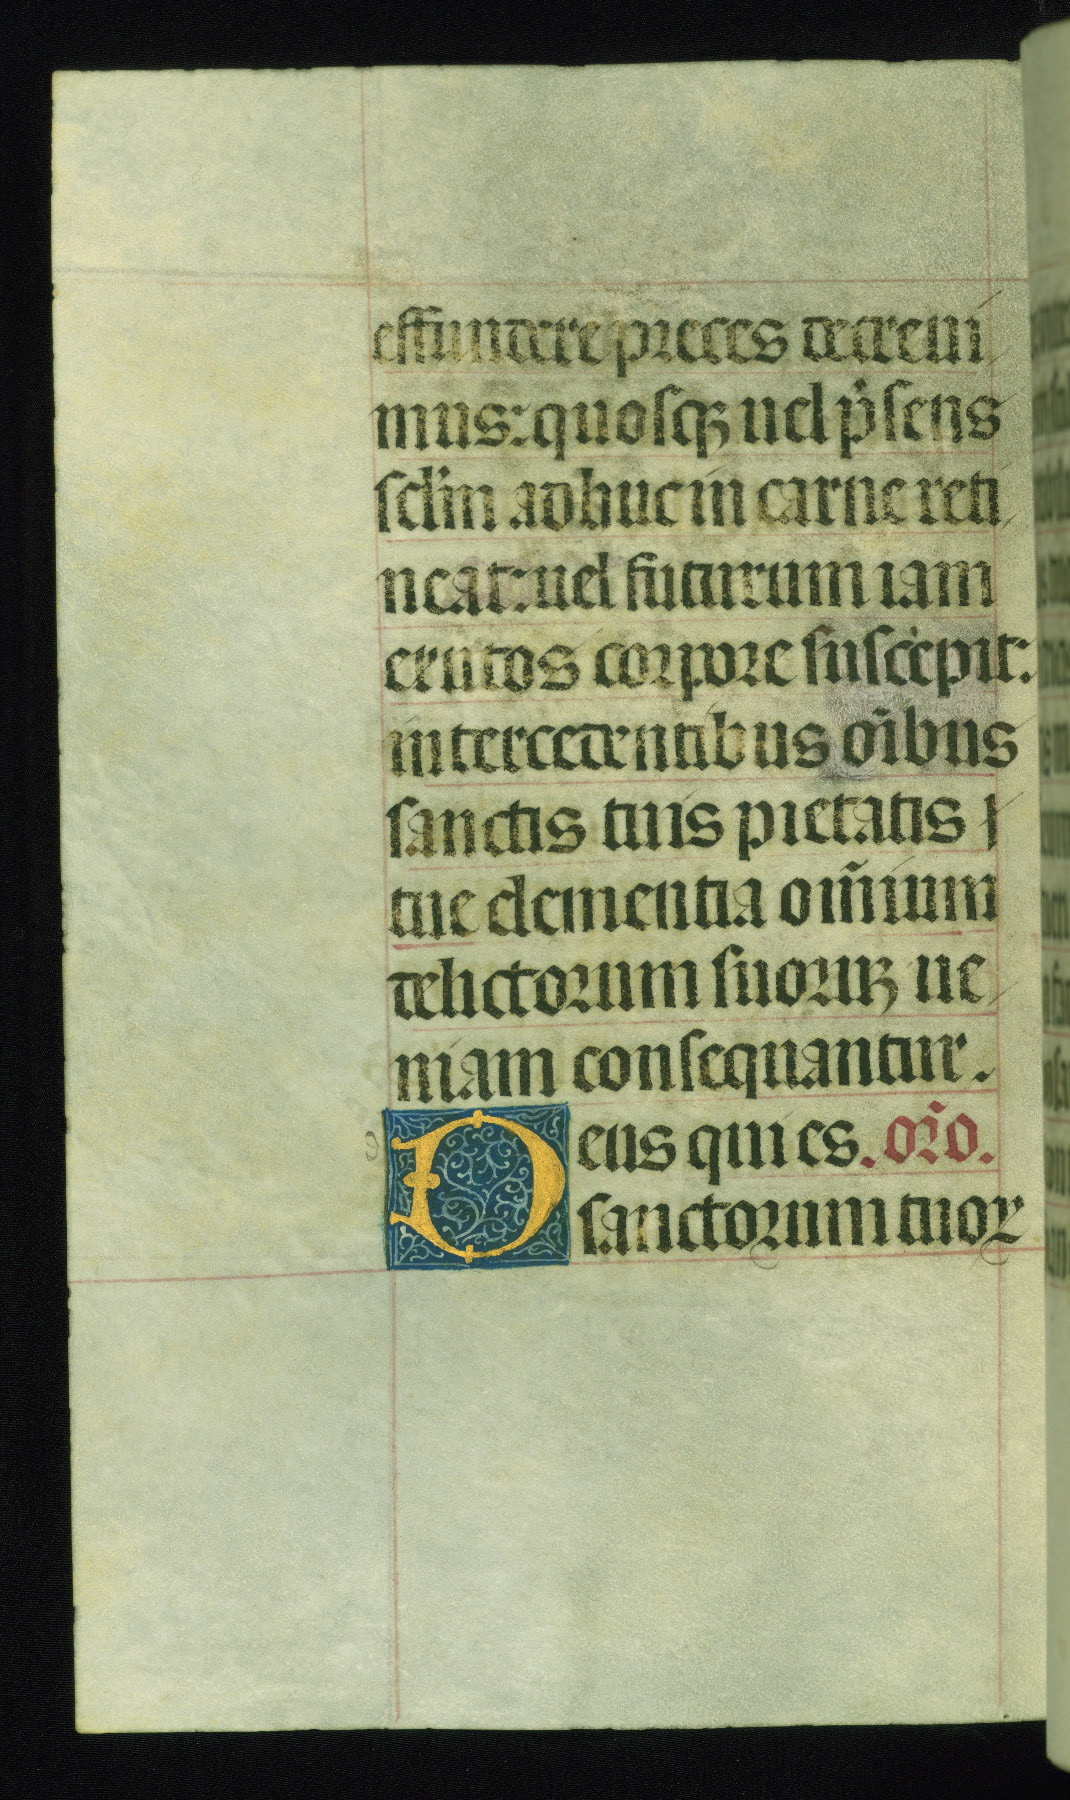 effundere preces decreui
mus: quosqꝫ uel p̃sens
sclm̃ adhuc in carne reti
neat: uel futurum iam
exutos corpore suscepit:
intercedentibus oĩbus
sanctis tuis pietatis
tue clementia om̃ium
delictorum suorũꝫ ue
niam consequantur.
Deus qui es. or̃o.
sanctorum tuoꝝ